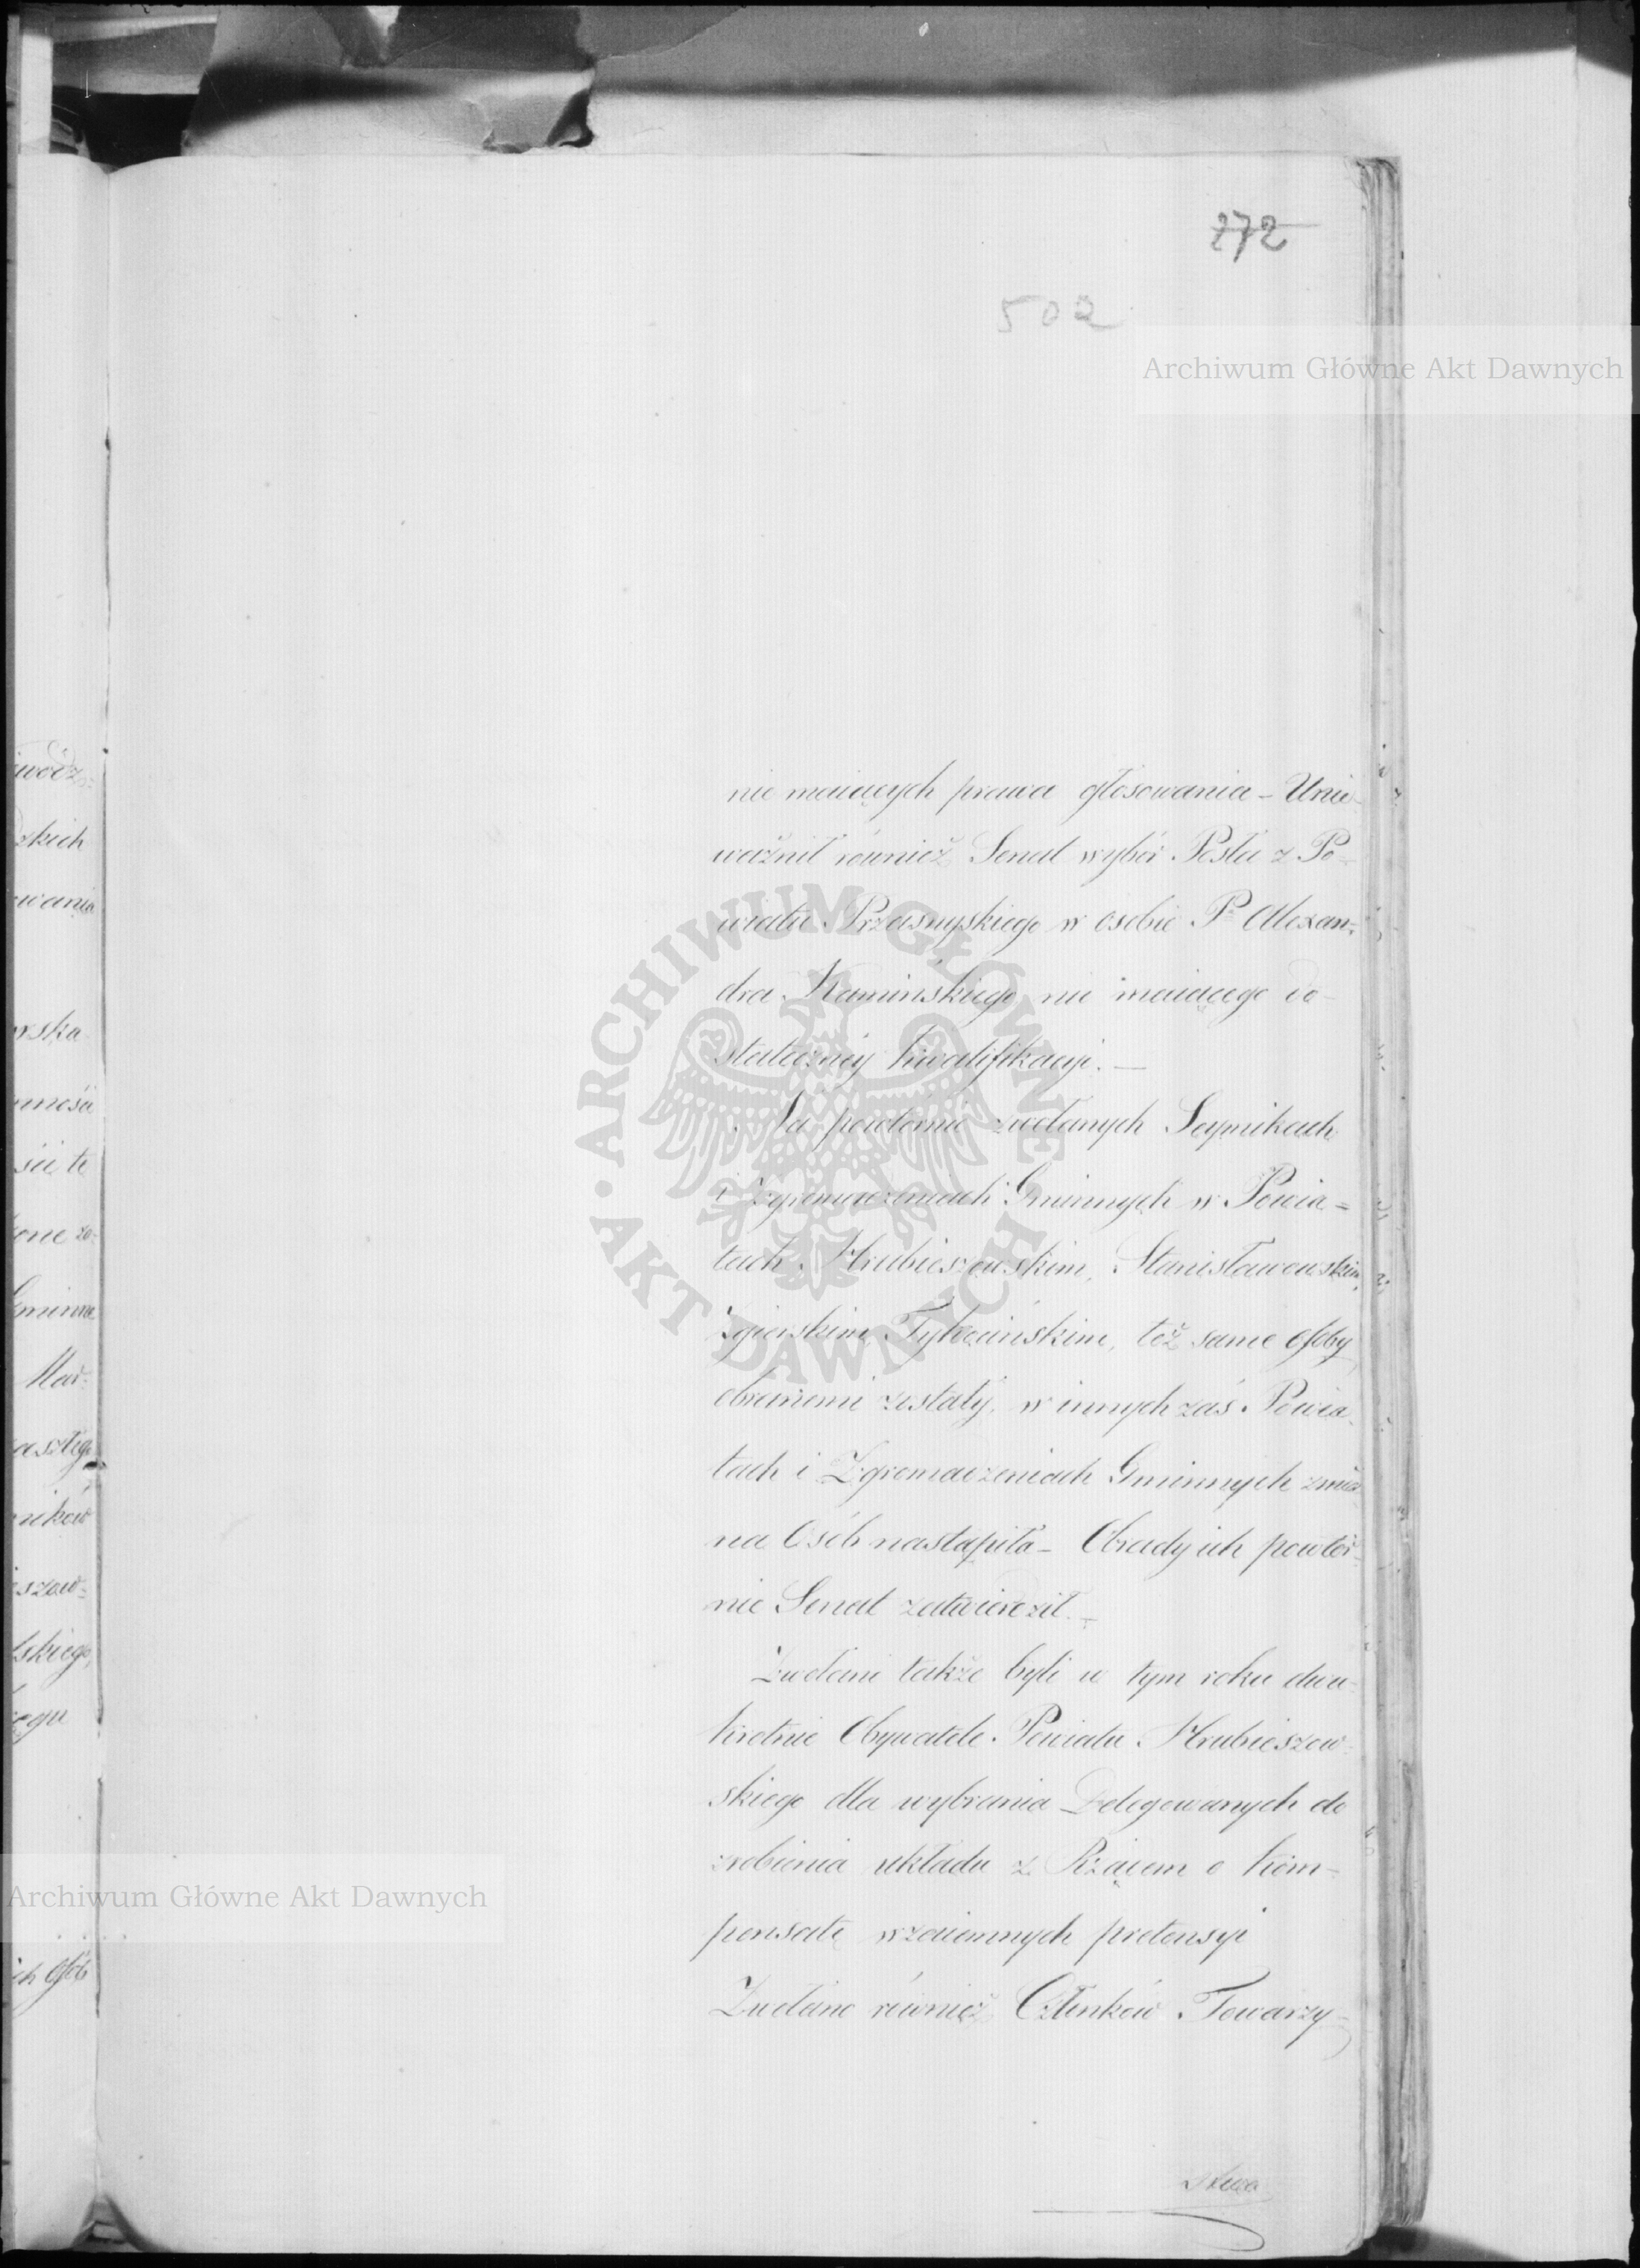 272
502
Archiwum Główne Akt Dawnych
nie maiących prawa głosowania – Unie-
ważnił również Senat wybór Posła z Po-
wiatu Przasnyskiego w osobie Pa Alexan-
dra Kamińskiego nie maiącego do-
statecznéy kwalifikacyi. —
Na powtórnie zwołanych Seymikach
i Zgromadzeniach Gminnych w Powia=
tach Hrubieszowskim, Stanisławowskim,
Zgierskim, Tykocińskim, też same osoby
obranemi zostały, w innych zaś Powia-
tach i Zgromadzeniach Gminnych zmia-
na Osób nastąpiła – Obrady ich powtór-
nie Senat zatwierdził. –
Zwołani także byli w tym roku dwu-
krotnie Obywatele Powiatu Hrubieszow-
skiego dla wybrania Delegowanych do
zrobienia układu z Rządem o kom-
pensatę wzaiemnych pretensyi
Zwołano również Członków Towarzy-
stwa
ARCHIWUM GŁÓWNE AKT DAWNYCH
wania
wska
mności
Gminne
Mar=
ników
skiego,
Archiwum Główne Akt Dawnych
ich osób